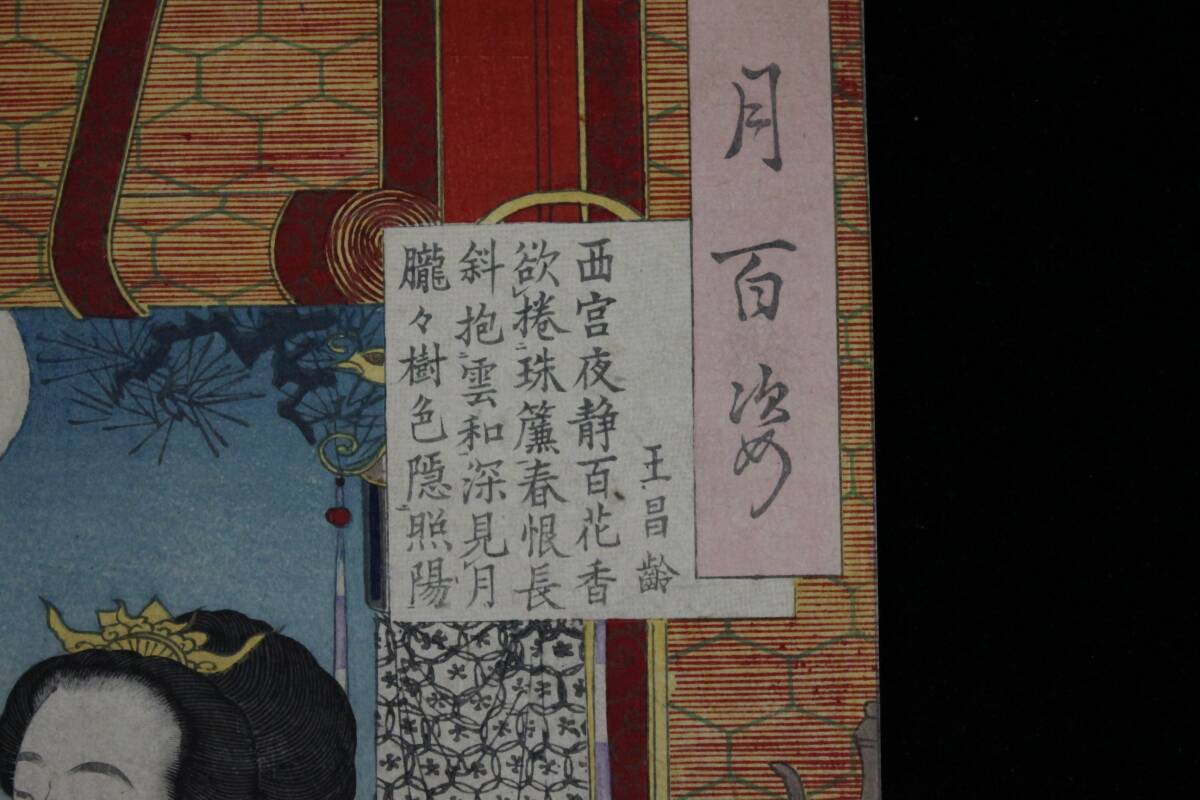 月百姿
王昌齢
西宮夜静百花香
欲捲珠簾春恨長
斜抱雲和深見月
朧々樹色隠照陽